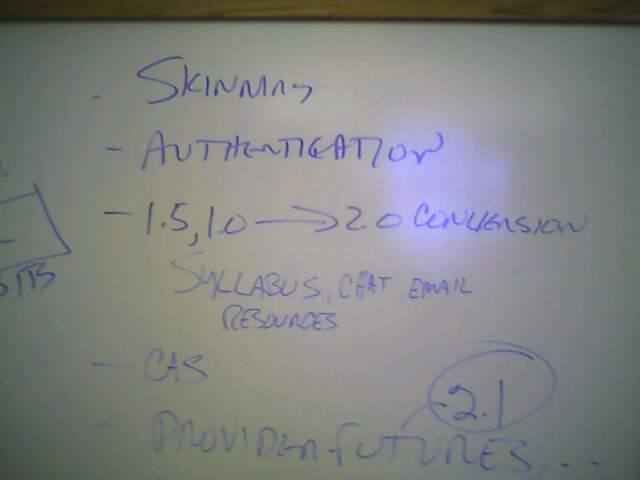 - SKINNING
- AUTHENTICATION
- 1.5, 1.0 → 2.0 CONVERSION
SYLLABUS, CHAT, EMAIL
RESOURCES
- CAS
- 2.1
- PROVIDER FUTURES...